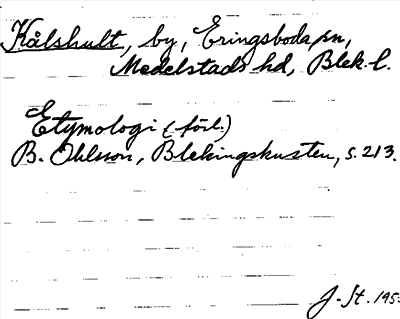 Kålshult, by, Eringsboda sn,
Medelstads hd, Blek. l.
Etymologi (förl.)
B. Ohlsson, Blekingskusten, s. 213.
J. St. 195